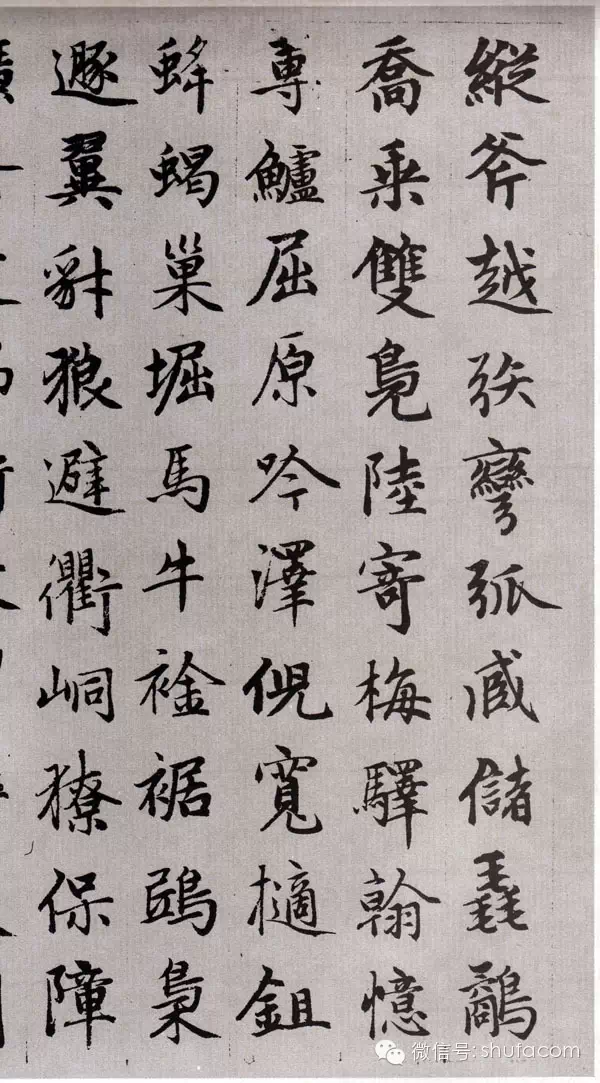 縱斧越疾彎弧戚儲毳鷸
喬乘雙鳧陸寄梅驛翰憶
專鱸屈原吟澤倪寬擿鉏
蜂蝎巢堀馬牛襘裾鴟梟
遯翼辭狼避衢峒獠保障
微信号: shufacom